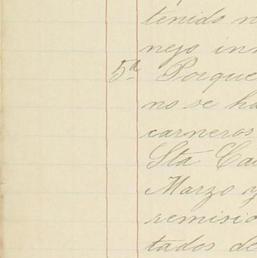 tenido n
nejo in
5ª Porque
no se ha
carneros
Sta Ca
Marzo y
remisio
tados de